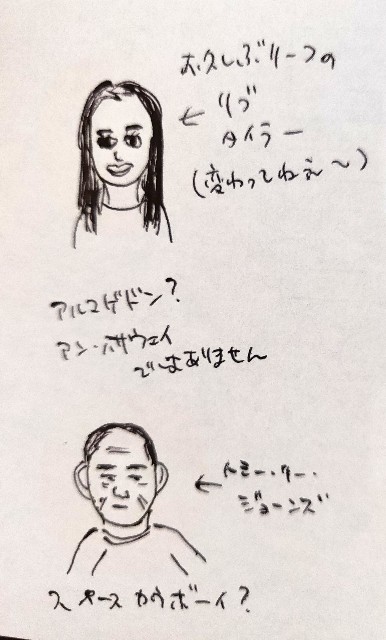 お久しぶりーフの
リブ
タイラー
(変わってねぇ〜)
アルマゲドン?
アン・ハサウェイ
ではありません
トミー・リー・
ジョーンズ
スペース カウボーイ?